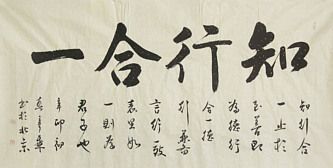 知行合一
知行合
一止於
至善即
為德行
合一德
行兼
言行一致
表里如
一則為
君子也
辛卯初
春華
书於北京